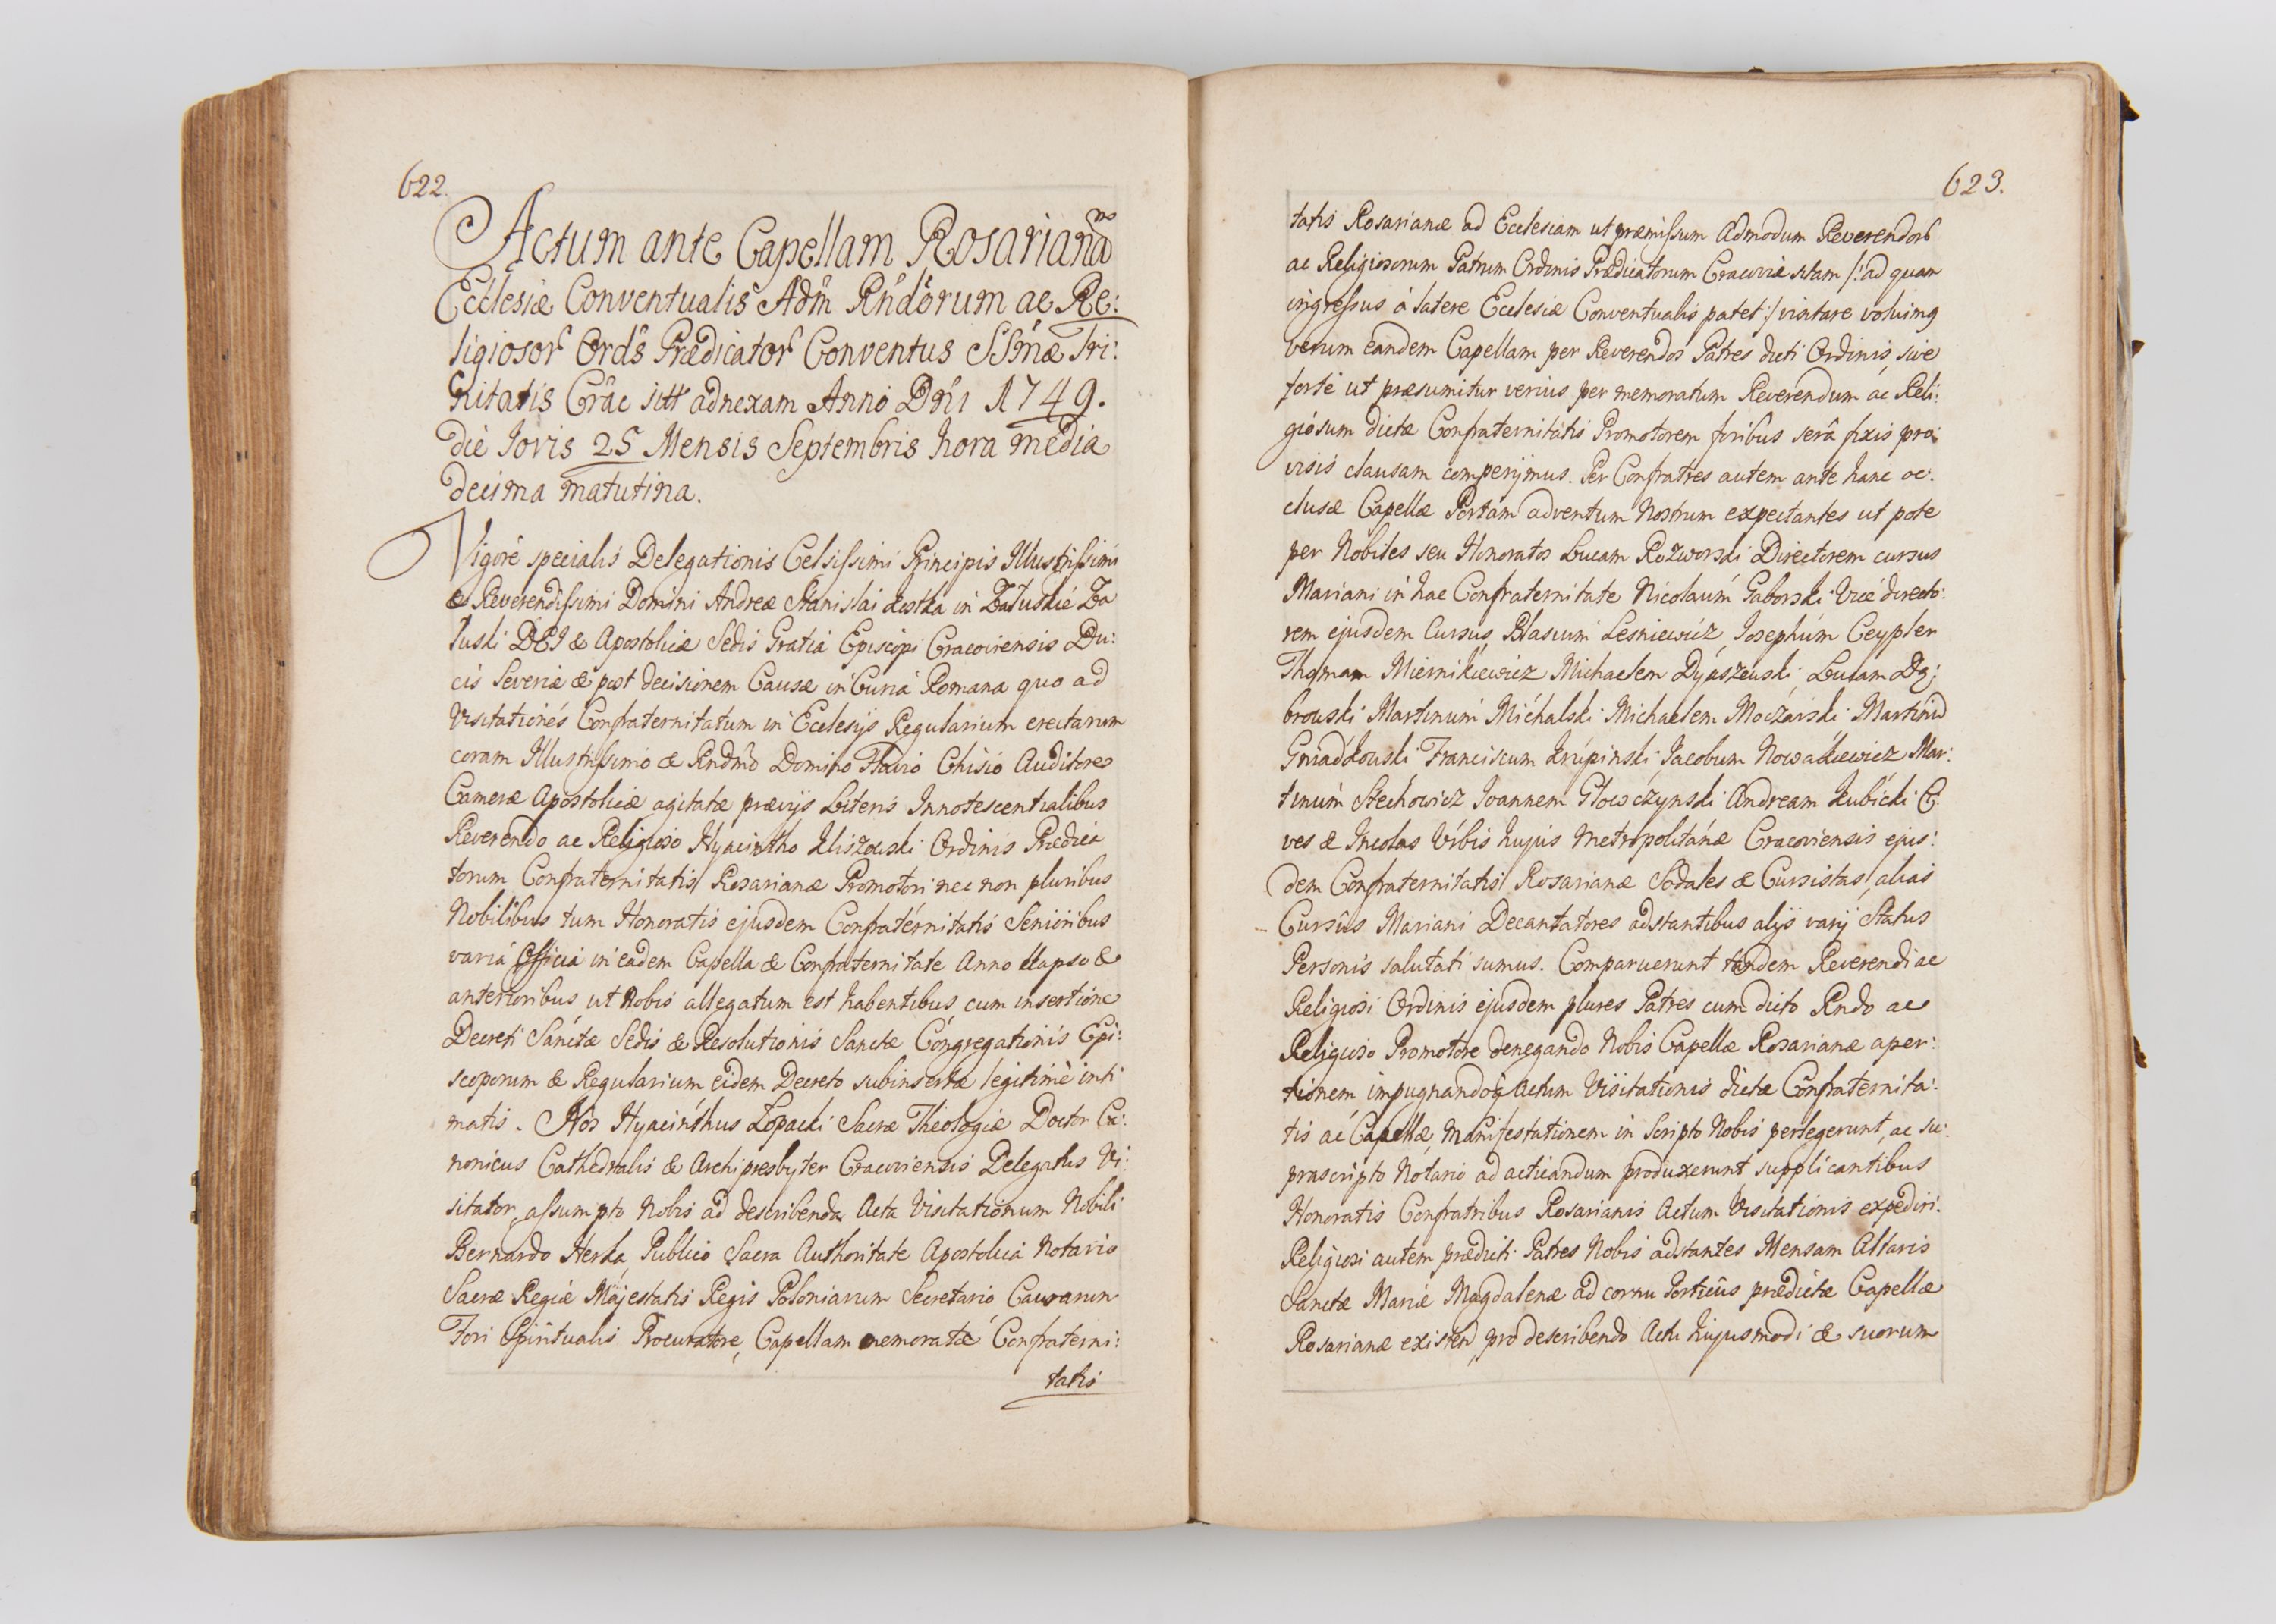 622.
Actum ante Capellam Rosarianã
Ecclesiæ Conventualis Adm̃ Rñdorum ac Re:
ligiosor Ords Prædicator Conventus SSmæ Tri:
nitatis Crac sitt adnexam Anno Dñi 1749.
die Jovis 25 Mensis Septembris hora media
decima matutina.
Vigore specialis Delegationis Celsissimi Principis Illustrissimi
& Reverendissimi Domini Andreæ Stanislai Kostka in Załuskie Za
łuski DEI & Apostolicæ Sedis Gratia Episcopi Cracoviensis Du:
cis Severiæ & post decisionem Causæ in Curia Romana quo ad
Visitationes Confraternitatum in Ecclesijs Regularium erectarum
coram Illustrissimo & Rndmo Domino Flavio Chisio Auditore
Cameræ Apostolicæ agitatæ prævijs Literis Innotescentialibus
Reverendo ac Religioso Hyacintho Kliszowski Ordinis Prædica
torum Confraternitatis Rosarianæ Promotori nec non pluribus
Nobilibus tum Honoratis ejusdem Confraternitatis Senioribus
varia Officia in eadem Capella & Confraternitate Anno elapso &
anterioribus ut Nobis allegatum est habentibus cum insertione
Decreti Sanctæ Sedis & Resolutionis Sanctæ Congregationis Epi:
scoporum & Regularium eidem Decreto subinsertæ legitime inti
matis. Nos Hyacinthus Łopacki Sacræ Theologiæ Doctor Ca:
nonicus Cathedralis & Archipresbyter Cracoviensis Delegatus Vi:
sitator, assumpto Nobis ad describenda Acta Visitationum Nobili
Bernardo Herka, Publico Sacra Authoritate Apostolica Notario
Sacræ Regiæ Majestatis Regis Poloniarum Secretario Causarum
Fori Spiritualis Procuratore, Capellam memoratæ Confraterni:
tatis
623.
tatis Rosarianæ ad Ecclesiam ut præmissum Admodum Reverendor
ac Religiosorum Patrum Ordinis Prædicatorum Cracoviæ sitam /: ad quam
ingressus á latere Ecclesiæ Conventualis patet :/ visitare voluimq
verum eandem Capellam per Reverendos Patres dicti Ordinis, sive
forte ut præsumitur verius per memoratum Reverendum ac Reli:
giosum dictæ Confraternitatis Promotorem foribus serâ fixis pro:
visis clausam comperijmus. Per Confratres autem ante hanc oc:
clusæ Capellæ Portam adventum Nostrum expectantes ut pote
per Nobiles seu Honoratos Lucam Rozworski Directorem cursus
Mariani in hac Confraternitate Nicolaum Gaborski Vice directo:
rem ejusdem Cursus, Blasium Lesniewicz, Josephum Ceypler
Thomam Miernikiewicz Michaelem Dyaszewski, Lucam Dą:
browski Martinum Michalski Michaelem Moczarski Martinũ
Gniadkowski Franciscum Krupinski, Jacobum Nowakiewicz Mar:
tinum Stechowicz Joannem Głowczynski Andream Kubicki Ci:
ves & Incolas Urbis hujus Metropolitanæ Cracoviensis ejus:
dem Confraternitatis Rosarianæ Sodales & Cursistas, alias
Cursûs Mariani Decantatores adstantibus alijs varij Status
Personis salutati sumus. Comparuerunt tandem Reverendi ac
Religiosi Ordinis ejusdem plures Patres cum dicto Rndo ac
Religioso Promotore denegando Nobis Capellæ Rosarianæ aper:
tionem impugnandoq Actum Visitationis dictæ Confraternita:
tis ac Capellæ, Manifestationem in scripto Nobis perlegerunt, ac su:
prascripto Notario ad acticandum produxerunt supplicantibus
Honoratis Confratribus Rosarianis Actum Visitationis expediri.
Religiosi autem prædicti Patres Nobis adstantes Mensam Altaris
Sanctæ Mariæ Magdalenæ ad cornu Porticûs prædictæ Capellæ
Rosarianæ existen, pro describendo Actu hujusmodi & suorum